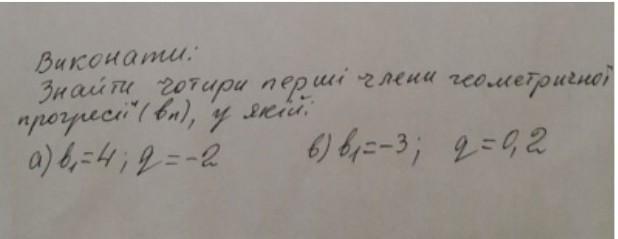 Виконати:
Знайти чотири перші члени геометричної
прогресії (bn), у якій:
а) b₁=4; q=-2 в) b₁=-3; q=0,2